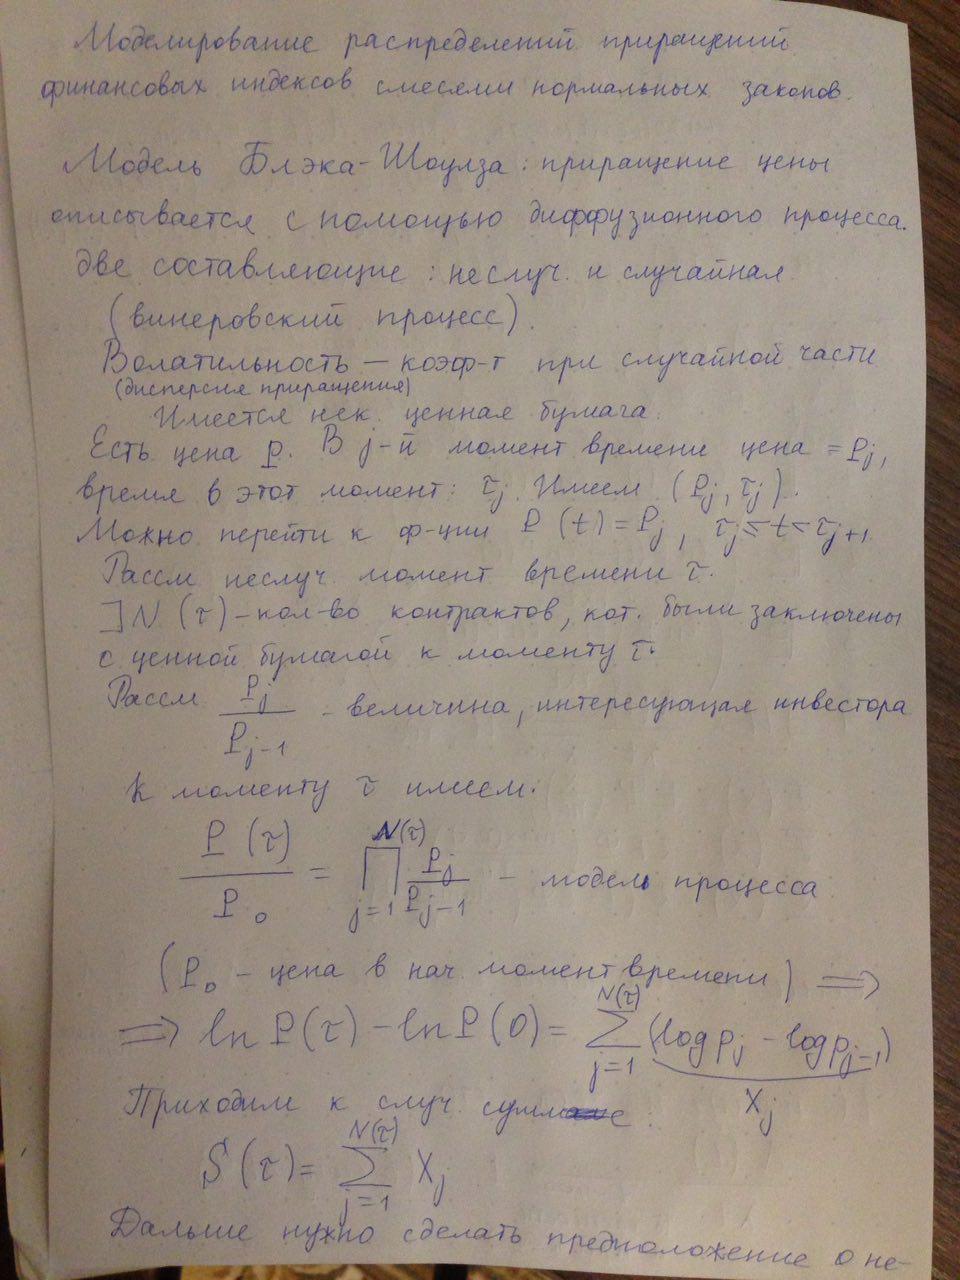 Моделирование распределений приращений
финансовых индексов смесями нормальных законов.
Модель Блэка-Шоулза: приращение цены
описывается с помощью диффузионного процесса.
две составляющие: неслуч. и случайная
(винеровский процесс).
Волатильность — коэф-т при случайной части
(дисперсия приращения)
Имеется нек. ценная бумага.
Есть цена P. В j-й момент времени цена = Pj,
время в этот момент: τj. Имеем (Pj, τj).
Можно перейти к ф-ции P(t) = Pj, τj ≤ t < τj+1
Рассм неслуч. момент времени τ.
∃ N(τ) - кол-во контрактов, кот. были заключены
с ценной бумагой к моменту τ.
Рассм Pj / Pj-1 - величина, интересующая инвестора
К моменту τ имеем:
P(τ) / P0 = ∏_{j=1}^{N(τ)} Pj / Pj-1 - модель процесса
(P0 - цена в нач. момент времени) ⟹
⟹ ln P(τ) - ln P(0) = ∑_{j=1}^{N(τ)} (log pj - log pj-1)
Xj
Приходим к случ. сумме:
S(τ) = ∑_{j=1}^{N(τ)} Xj
Дальше нужно сделать предположение о не-